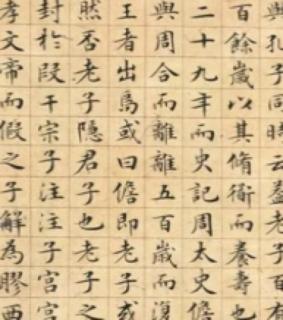 與孔子同時云蓋老子百有
百餘歲以其脩術而養壽也
二十九年而史記周太史儋
與周合而離離五百歲而復
王者出焉或曰儋即老子或
然否老子隱君子也老子之
封於段干宗子注注子宮宮
孝文帝而假之子解為膠西